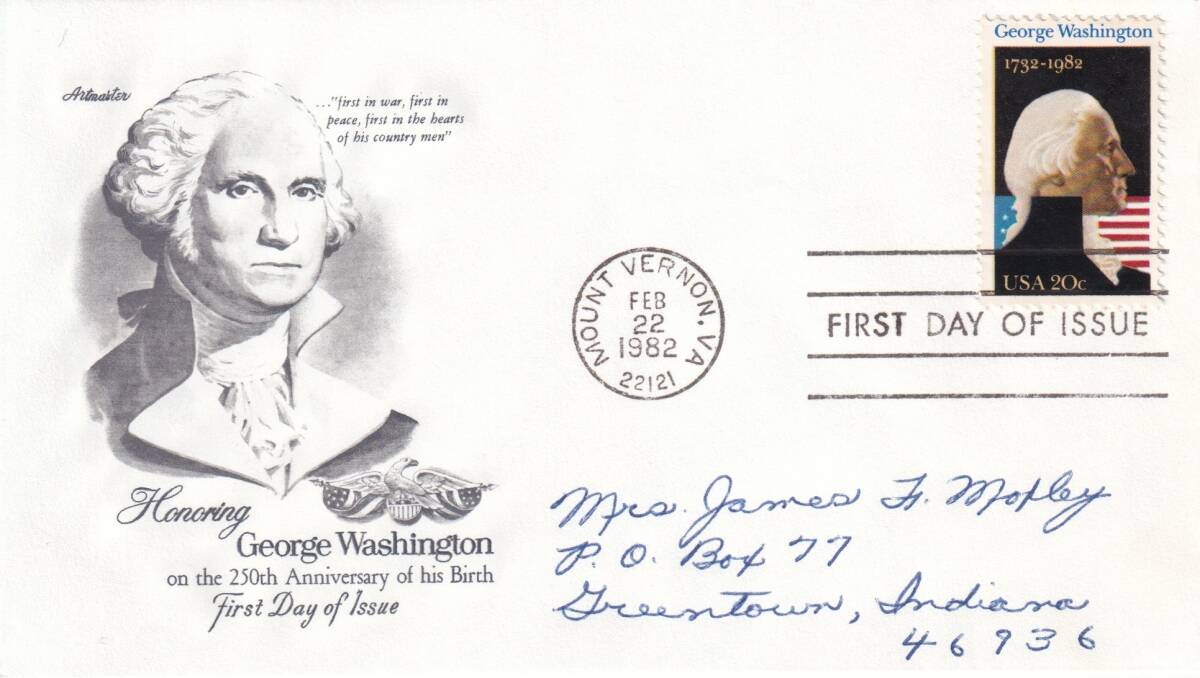 Artmaster
..."first in war, first in
peace, first in the hearts
of his country men"
George Washington
1732-1982
USA 20c
MOUNT VERNON, VA
FEB
22
1982
22121
FIRST DAY OF ISSUE
Honoring
George Washington
on the 250th Anniversary of his Birth
First Day of Issue
Mrs. James F. Mopley
P. O. Box 77
Greentown, Indiana
46936